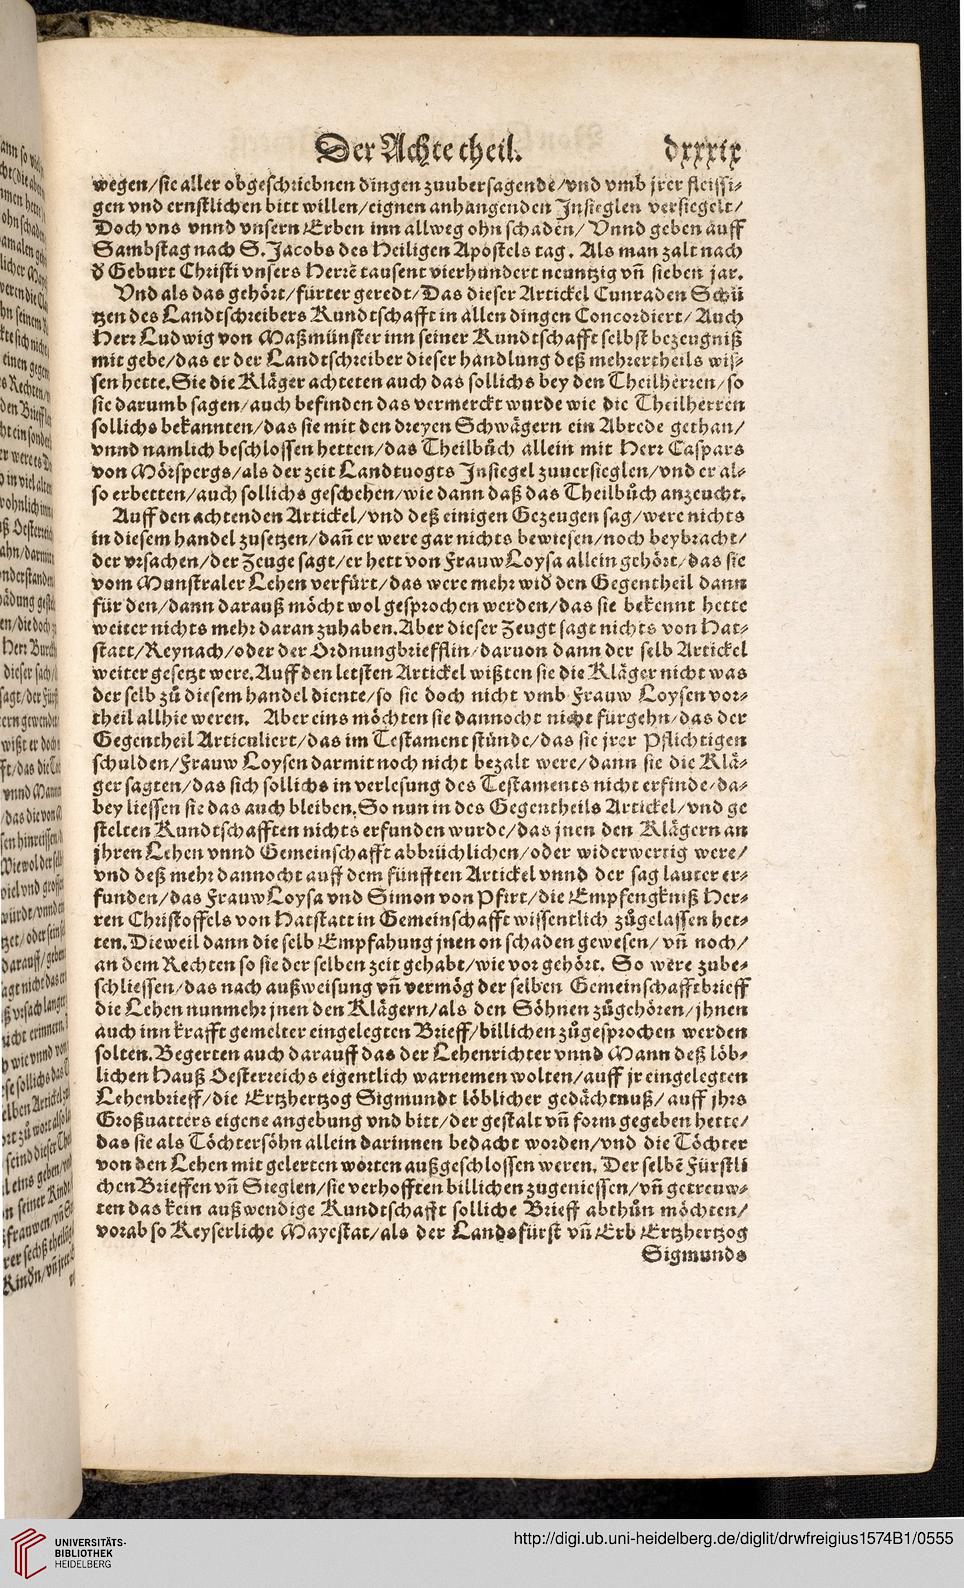 Der Achte theil. dxxxix
wegen/sie aller obgeschriebnen dingen zuubersagende/vnd vmb jrer fleissi-
gen vnd ernstlichen bitt willen/eignen anhangenden Insieglen versiegelt/
Doch vns vnnd vnsern Erben inn allweg ohn schaden/ Vnnd geben auff
Sambstag nach S. Jacobs des Heiligen Apostels tag. Als man zalt nach
d' Geburt Christi vnsers Herrē tausent vierhundert neuntzig vn̄ sieben jar.
Vnd als das gehört/fürter geredt/Das dieser Artickel Cunraden Schü
tzen des Landtschreibers Kundtschafft in allen dingen Concordiert/ Auch
Herr Ludwig von Maßmünster inn seiner Kundtschafft selbst bezeugniß
mit gebe/das er der Landtschreiber dieser handlung deß mehrertheils wis-
sen hette. Sie die Kläger achteten auch das sollichs bey den Theilherren/so
sie darumb sagen/auch befinden das vermerckt wurde wie die Theilherren
sollichs bekannten/das sie mit den dreyen Schwägern ein Abrede gethan/
vnnd namlich beschlossen hetten/das Theilbůch allein mit Herr Caspars
von Mörspergs/als der zeit Landtuogts Insiegel zuuersieglen/vnd er al-
so erbetten/auch sollichs geschehen/wie dann daß das Theilbůch anzeucht.
Auff den achtenden Artickel/vnd deß einigen Gezeugen sag/were nichts
in diesem handel zusetzen/dan̄ er were gar nichts bewiesen/noch beybracht/
der vrsachen/der Zeuge sagt/er hett von Frauw Loysa allein gehört/das sie
vom Munstraler Lehen verfürt/das were mehr wid' den Gegentheil dann
für den/dann darauß möcht wol gesprochen werden/das sie bekennt hette
weiter nichts mehr daran zuhaben. Aber dieser Zeugt sagt nichts von Hat-
statt/Reynach/oder der Ordnungbriefflin/daruon dann der selb Artickel
weiter gesetzt were. Auff den letsten Artickel wißten sie die Kläger nicht was
der selb zů diesem handel diente/so sie doch nicht vmb Frauw Loysen vor-
theil allhie weren. Aber eins möchten sie dannocht nicht fürgehn/das der
Gegentheil Articuliert/das im Testament stünde/das sie jrer Pflichtigen
schulden/Frauw Loysen darmit noch nicht bezalt were/dann sie die Klä-
ger sagten/das sich sollichs in verlesung des Testaments nicht erfinde/da-
bey liessen sie das auch bleiben. So nun in des Gegentheils Artickel/vnd ge
stelten Kundtschafften nichts erfunden wurde/das jnen den Klägern an
jhren Lehen vnnd Gemeinschafft abbrüchlichen/oder widerwertig were/
vnd deß mehr dannocht auff dem fünfften Artickel vnnd der sag lauter er-
funden/das Frauw Loysa vnd Simon von Pfirt/die Empfengkniß Her-
ren Christoffels von Hatstatt in Gemeinschafft wissentlich zůgelassen het-
ten. Dieweil dann die selb Empfahung jnen on schaden gewesen/ vn̄ noch/
an dem Rechten so sie der selben zeit gehabt/wie vor gehört. So were zube-
schliessen/das nach außweisung vn̄ vermög der selben Gemeinschafftbrieff
die Lehen nunmehr jnen den Klägern/als den Söhnen zůgehören/jhnen
auch inn krafft gemelter eingelegten Brieff/billichen zůgesprochen werden
solten. Begerten auch darauff das der Lehenrichter vnnd Mann deß löb-
lichen Hauß Oesterreichs eigentlich warnemen wolten/auff jr eingelegten
Lehenbrieff/die Ertzhertzog Sigmundt löblicher gedächtnuß/ auff jhrs
Großuatters eigene angebung vnd bitt/der gestalt vn̄ form gegeben hette/
das sie als Töchtersöhn allein darinnen bedacht worden/vnd die Töchter
von den Lehen mit gelerten worten außgeschlossen weren. Der selbē Fürstli
chen Brieffen vn̄ Sieglen/sie verhofften billichen zugeniessen/vn̄ getreuw-
ten das kein außwendige Kundtschafft solliche Brieff abthůn möchten/
vorab so Keyserliche Mayestat/als der Landsfürst vn̄ Erb Ertzhertzog
Sigmunds
UNIVERSITÄTS-
BIBLIOTHEK
HEIDELBERG
http://digi.ub.uni-heidelberg.de/diglit/drwfreigius1574B1/0555